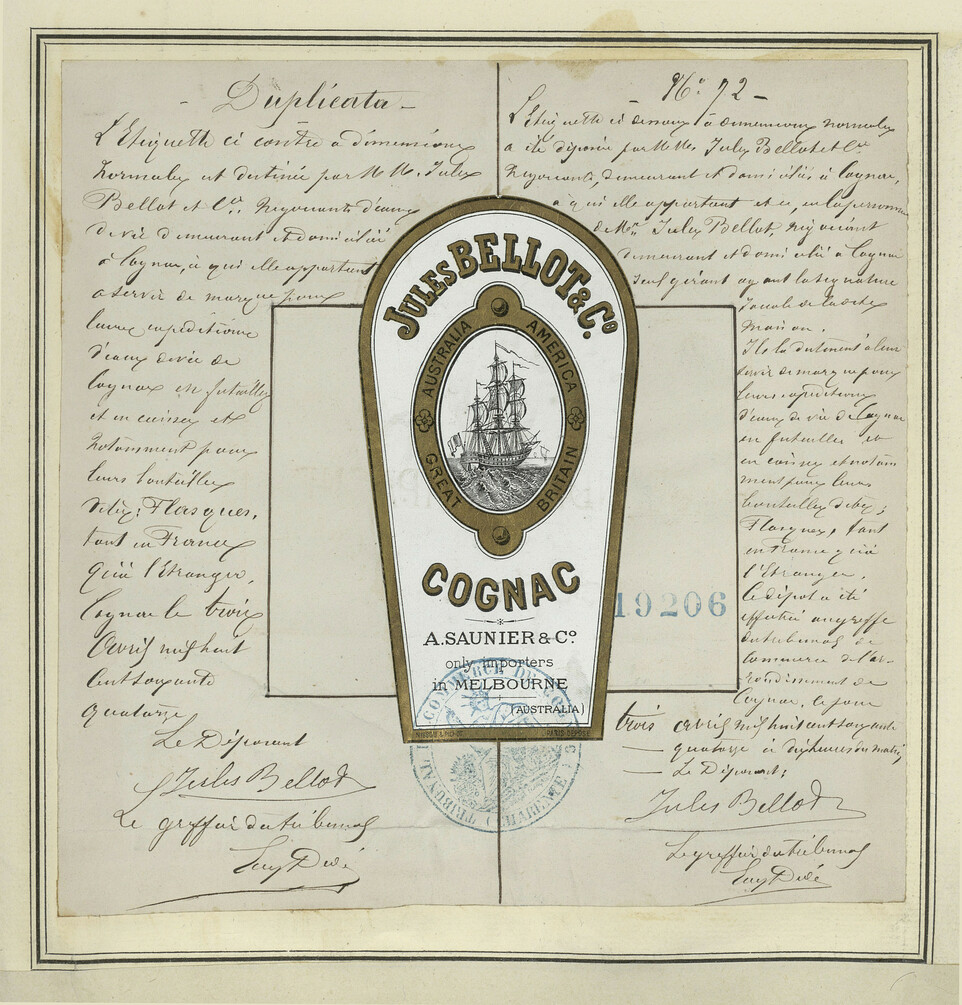 - Duplicata -
L'Etiquette ci contre à dimensions
Normales est destinée par MM. Jules
Bellot et Cie. Négociants d'eaux
de vie demeurant et domiciliés
à Cognac, à qui elle appartient
à servir de marque pour
leurs expéditions
d'eaux de vie de
Cognac en futailles
et en caisses et
Notamment pour
leurs bouteilles
dites: Flasques,
tant en France
qu'à l'Etranger,
Cognac le trois
Avril mil huit
cent soixante
quatorze
Le Déposant
Jules Bellot
Le greffier du tribunal
- No. 72 -
L'Etiquette ci dessus à dimensions normales
a été déposée par MM. Jules Bellot et Cie
Négociants, demeurant et domiciliés à Cognac,
à qui elle appartient et ce, en la personne
de Mr. Jules Bellot, négociant
demeurant et domicilié à Cognac
seul gérant ayant la signature
sociale de la dite
maison.
Ils la destinent à leur
servir de marque pour
leurs expéditions
d'eaux de vie de Cognac
en futailles et
en caisses et notam
ment pour leurs
bouteilles dites;
Flasques, tant
en France qu'à
l'Etranger.
Ce dépôt a été
effectué au greffe
du tribunal de
Commerce de l'ar-
rondissement de
Cognac, ce jour
trois avril mil huit cent soixante
quatorze à dix heures du matin
Le Déposant;
Jules Bellot
Le greffier du tribunal
JULES BELLOT & Co
AUSTRALIA AMERICA
GREAT BRITAIN
COGNAC
A. SAUNIER & Co
only importers
in MELBOURNE
(AUSTRALIA)
PARIS DÉPOSÉ
19206
TRIBUNAL DE COMMERCE DE COGNAC
(CHARENTE)